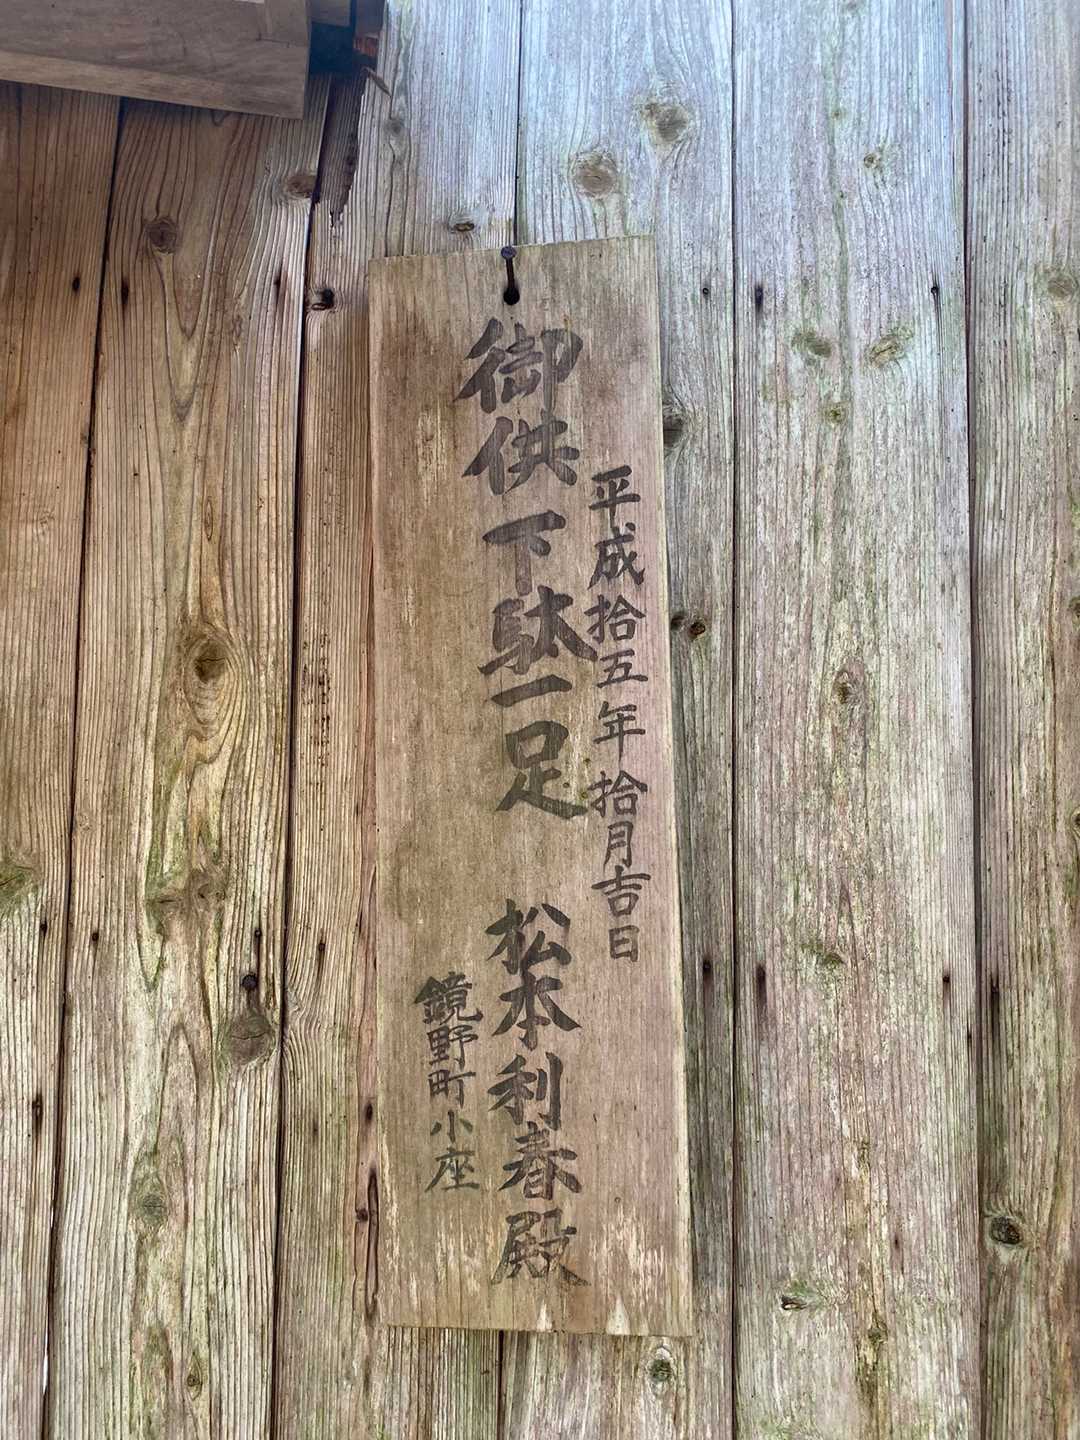 平成拾五年拾月吉日
御供下駄一足 松本利春殿
鏡野町小座